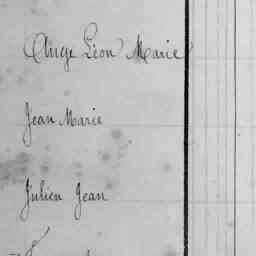 Ange Léon Marie
Jean Marie
Julien Jean